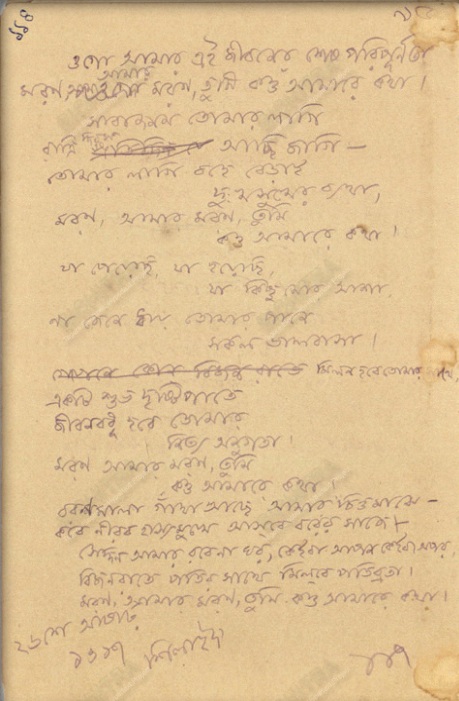 ১১৪
ওগো আমার এই জীবনের শেষ পরিপূর্ণতা
মরণ, আমার মরণ, তুমি কও আমারে কথা।
সারাজনম তোমার লাগি
প্রতিদিন যে আছি জাগি—
তোমার লাগি বহে বেড়াই
দুঃখসুখের ব্যথা,
মরণ, আমার মরণ, তুমি
কও আমারে কথা।
যা পেয়েছি, যা হয়েছি,
যা কিছু মোর আশা,
না জেনে ধায় তোমার পানে
সকল ভালবাসা।
মিলন হবে তোমার সাথে,
একটি শুভ দৃষ্টিপাতে
জীবনবধূ হবে তোমার
নিত্য অনুগতা।
মরণ আমার মরণ, তুমি
কও আমারে কথা।
বরণমালা গাঁথা আছে আমার চিত্তমাঝে—
কবে নীরব হাস্যমুখে আসবে বরের সাজে।
সেদিন আমার রবেনা ঘর, কেইবা আপন কেইবা অপর,
বিজনরাতে পতির সাথে মিলবে পতিব্রতা।
মরণ, আমার মরণ, তুমি কও আমারে কথা।
২৬শে আষাঢ়
১৩১৭ শিলাইদা